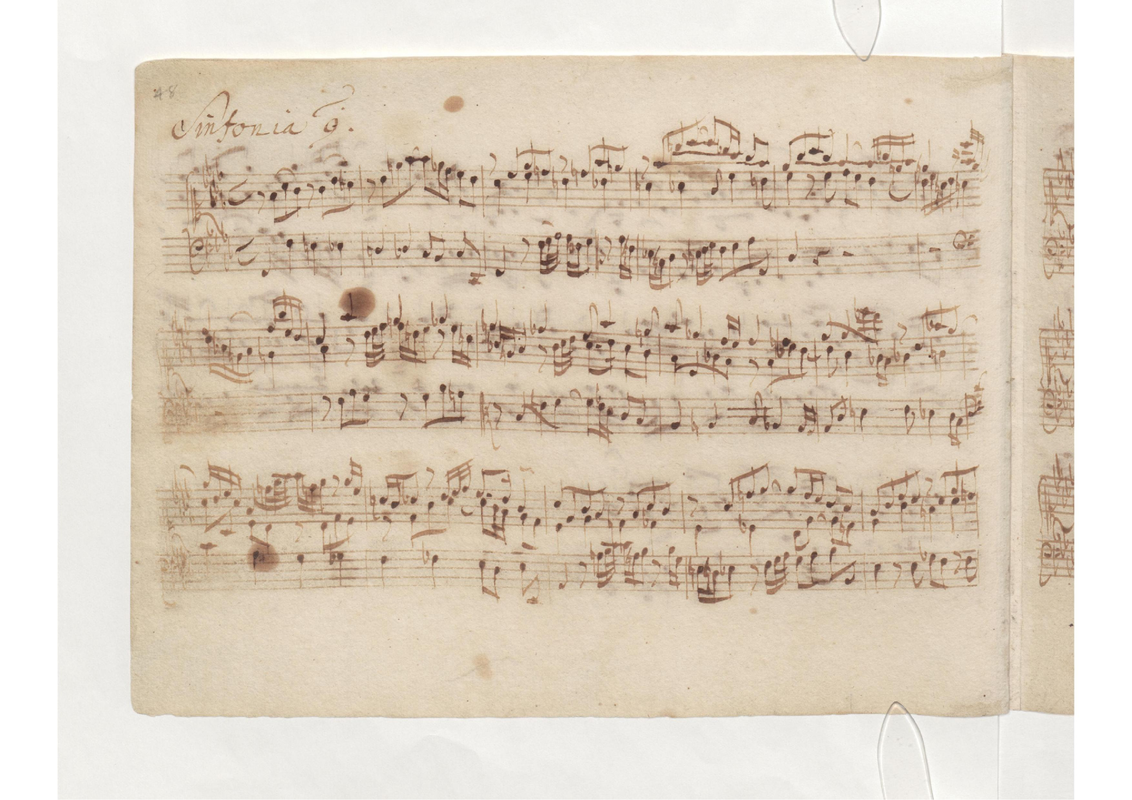 48
Sinfonia 9.